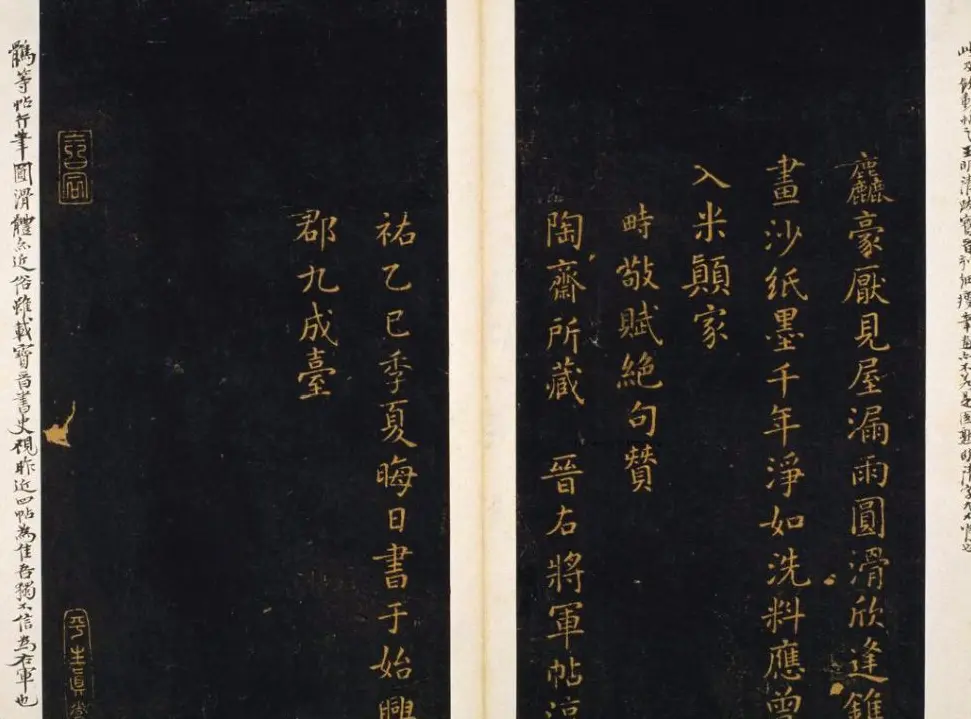 麤豪厭見屋漏雨圓滑欣逢錐
畫沙紙墨千年淨如洗料應曾
入米顛家
時敬賦絕句贊
陶齋所藏 晉右將軍帖淳
祐乙巳季夏晦日書于始興
郡九成臺
鶻等帖行筆圓滑體亦近俗雖載寶晉書史視昨近四帖為佳吾獨不信為右軍也
平生真賞